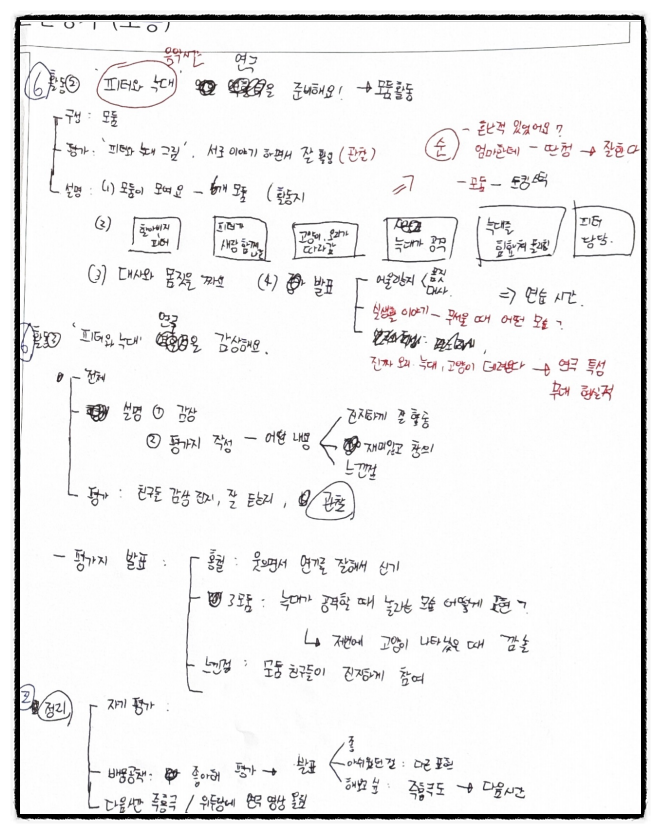 음악시간 연극
⑥ 활동② '피터와 늑대' 을 준비해요! → 모둠활동
구성 : 모둠
- 흔난적 있었어요?
평가 : '피터와 늑대 그림'. 서로 이야기 하면서 잘 (관찰)
순 엄마한테 - 딴청 → 잘한다
설명 : (1) 모둠이 모여요 - 6개 모둠 (활동지
⇒ - 모둠 - 토킹스틱
(2) 할아버지 피터
피터가 새랑 함께
고양이, 오리가 따라감
늑대가 공격
늑대를 힘합쳐 물리침
피터 당당.
(3) 대사와 몸짓을 짜요 (4) 발표
어울리는지 < 몸짓 대사. ⇒ 연습 시간.
학생들 이야기 - 무서울 때 어떤 모습?
활동③ '피터와 늑대' 연극을 감상해요.
진짜 오리. 늑대, 고양이 데려온다 → 연극 특성
무대 현실적
- 전체
설명 ① 감상
② 평가지 작성 - 어떤 내용
진지하게 잘 활동
재미있고 창의
느낀점
평가 : 친구들 감상 진지, 잘 듣는지, 관찰
- 평가지 발표 :
홍철 : 웃으면서 연기를 잘해서 신기
3모둠 : 늑대가 공격할 때 놀라는 모습 어떻게 표현?
↳ 저번에 고양이 나타났을 때 깜놀
느낀점 : 모둠 친구들이 진지하게 참여
정리
자기 평가 :
배움공책 : 종이에 평가 → 발표
좋
아쉬웠던 점 : 다른 표현
해보고 싶 : 즉흥극도 → 다음시간
다음시간 즉흥극 / 위두랑에 연극 영상 올림